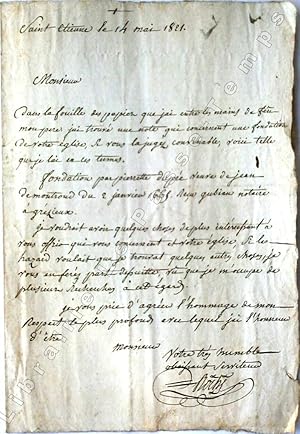 Saint Etienne le 14 mai 1821.
Monsieur
dans la fouille des papier que jai entre les mains de feu
mon pere jai trouvé une note qui concernent une fondation
de votre église, Si vous la jugez convenable, voici telle
que je lai en ces termes.
fondation par pierrette dupré veuve de jean
de montroud du 2 janvier Reçu gubian notaire
a grezieux.
je voudrait avoir quelques choses de plus interessant a
vous offrir qui vous concernent et votre église, Si le
hazard voulait que je trouvat quelques autres choses, je
vous en ferés part desuitte, vu que je m'occupe de
plusieur Recherches a cet egard
je vous prie d'agréer l'hommage de mon
Respect le plus profond avec lequel j'ai l'honneur
d'être
Monsieur
Votre très humble
obeissant Serviteur